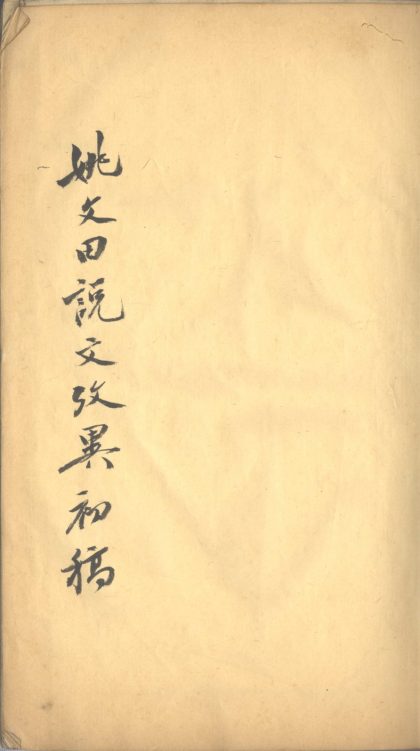 姚文田說文攷異初稿